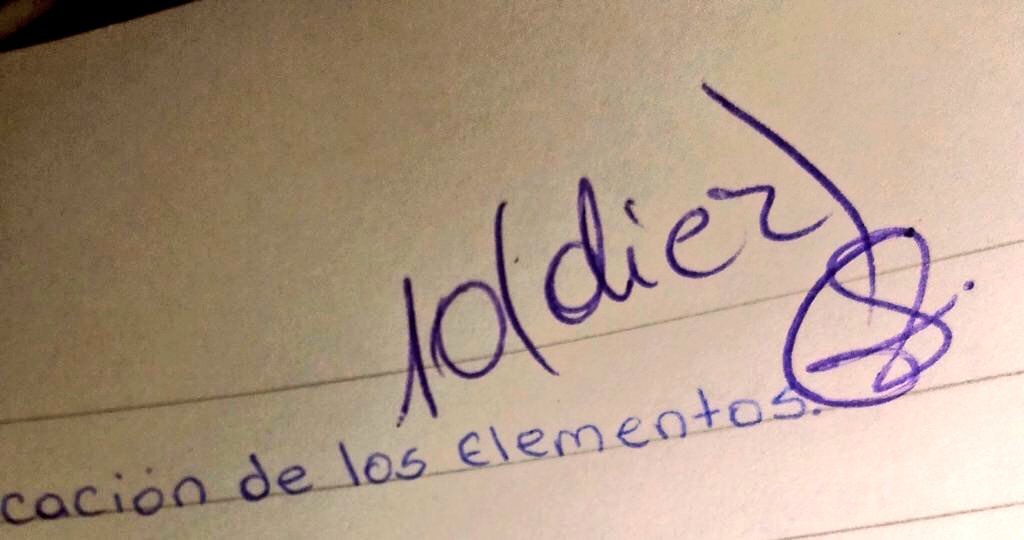 10(diez)
cación de los Elementos.